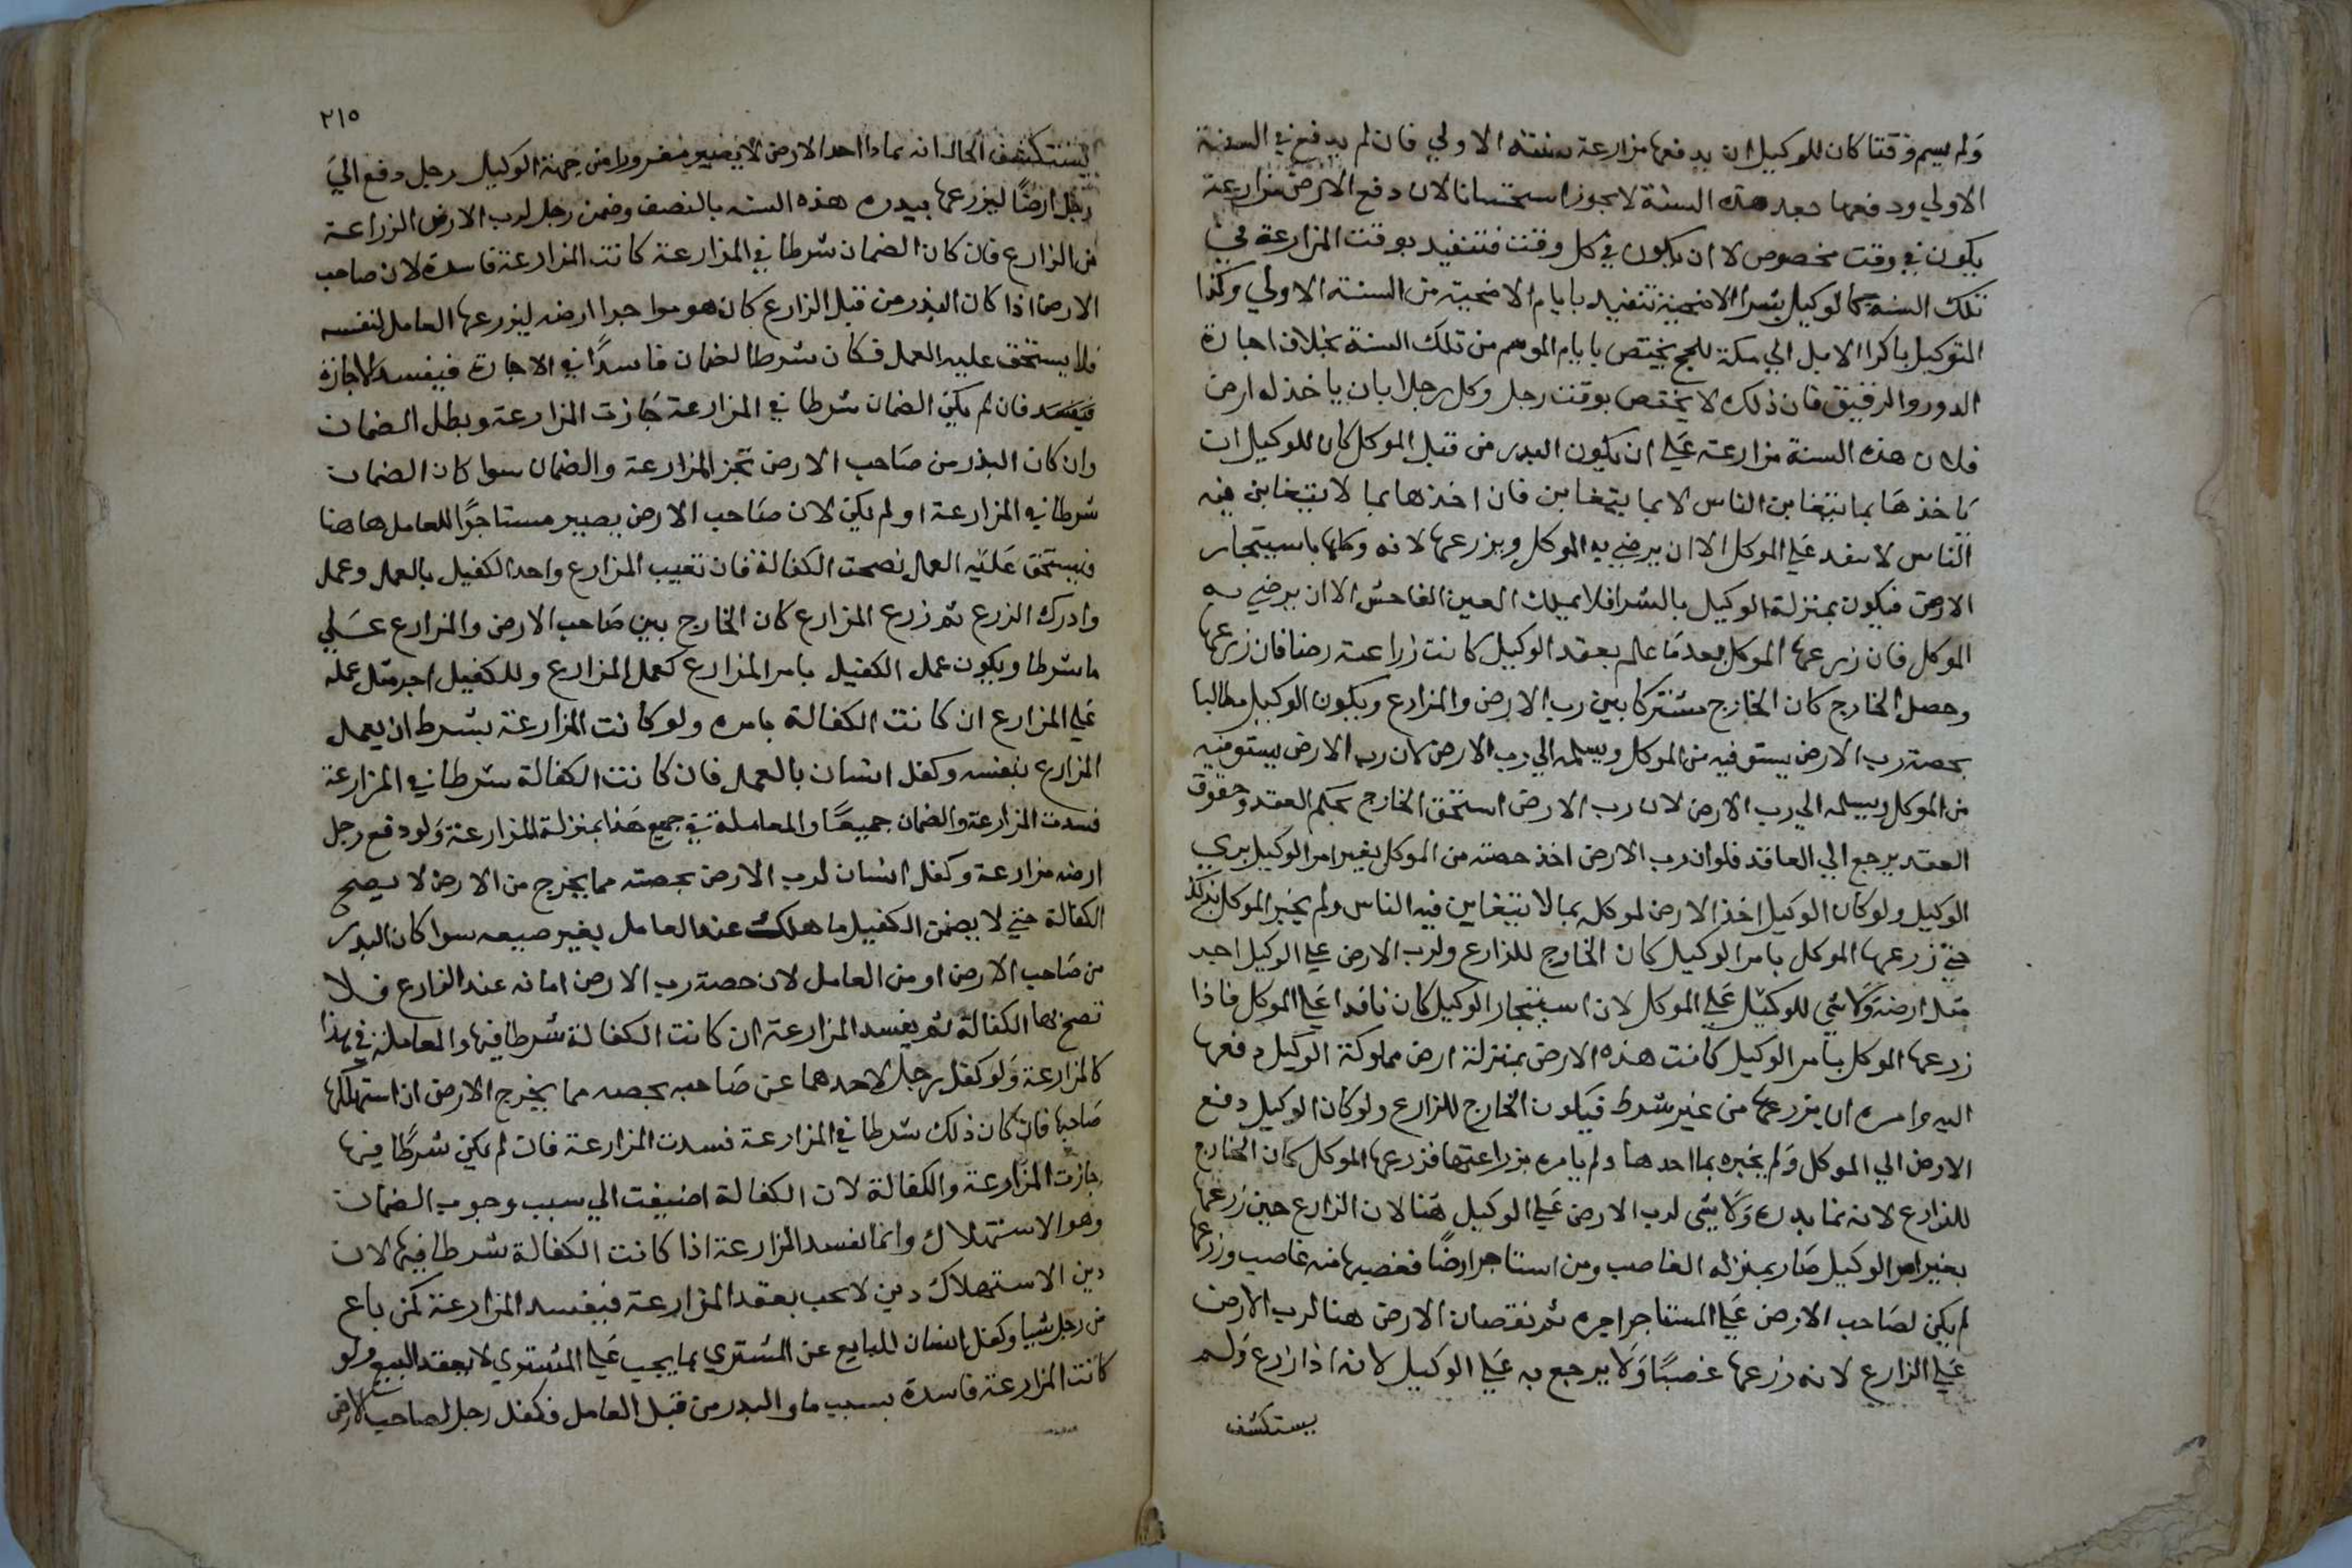 ولم يسم وقتا كان للوكيل ان يدفعها مزارعة سنته الاولي فان لم يدفع في السنة
الاولي ودفعها بعد هذه السنة لا يجوز استحسانا لان دفع الارض مزارعة
يكون في وقت مخصوص لا ان يكون في كل وقت فتتقيد بوقت المزارعة في
تلك السنة كالوكيل بشرا الاضحية تتقيد بايام الاضحية من السنة الاولي وكذا
التوكيل باكرا الابل الي مكة للحج يختص بايام الموسم من تلك السنة بخلاف اجارة
الدور والرقيق فان ذلك لا يختص بوقت رجل وكل رجلا بان ياخذ له ارض
فلان هذه السنة مزارعة علي ان يكون البدر من قبل الموكل كان للوكيل ان
ياخذها بما يتغابن الناس لا بما يتغابن فان اخذها بما لا يتغابن فيه
الناس لا ينفد علي الموكل الا ان يرضي به الموكل ويزرعها لانه وكلها باسيتجار
الارض فيكون بمنزلة الوكيل بالشرا فلا يملك الغبن الفاحش الا ان يرضي به
الموكل فان زرعها الموكل بعد ما علم بعقد الوكيل كانت زراعته رضا فان زرعها
وحصل الخارج كان الخارج مشتركا بين رب الارض والمزارع ويكون الوكيل مطالبا
بحصة رب الارض يستوفيه من الموكل ويسلمه الي رب الارض لان رب الارض يستوفيه
من الموكل ويسلمه الي رب الارض لان رب الارض استحق الخارج بحكم العقد وحقوق
العقد يرجع الي العاقد فلو ان رب الارض اخذ حصته من الموكل بغير امر الوكيل بري
الوكيل ولو كان الوكيل اخذ الارض لموكله بما لا يتغابن فيه الناس ولم يخبر الموكل بذلك
حتي زرعها الموكل بامر الوكيل كان الخارج للزارع ولرب الارض علي الوكيل اجر
مثل ارضه ولا شي للوكيل علي الموكل لان استيجار الوكيل كان نافدا علي الموكل فاذا
زرعها الموكل بامر الوكيل كانت هذه الارض بمنزلة ارض مملوكة الوكيل دفعها
اليه وامره ان يزرعها من غير شرط فيكون الخارج للزارع ولو كان الوكيل دفع
الارض الي الموكل ولم يخبره بما اخدها ولم يامره بزراعتها فزرعها الموكل كان الخارج
للزارع لانه نما بدره ولا شي لرب الارض علي الوكيل هنا لان الزارع حين زرعها
بغير امر الوكيل صار بمنزلة الغاصب ومن استاجر ارضا فغصبها منه غاصب وزرعها
لم يكن لصاحب الارض علي المستاجر اجره ثم نقصان الارض هنا لرب الارض
علي الزارع لانه زرعها غصبا ولا يرجع به علي الوكيل لانه اذا زرع ولم
يستكشف
٢١٥
يستكشف الحال انه بماذا اخد الارض لا يصير مغرورا من جهة الوكيل رجل دفع الي
رجل ارضا ليزرعها ببدره هذه السنه بالنصف وضمن رجل لرب الارض الزراعة
من الزارع فان كان الضمان شرطا في المزارعة كانت المزارعة فاسدة لان صاحب
الارض اذا كان البذر من قبل الزارع كان هو مواجرا ارضه ليزرعها العامل لنفسه
فلا يستحق عليه العمل فكان شرط الضمان فاسدا في الاجارة فيفسد الاجازة
فيفسد فان لم يكن الضمان شرطا في المزارعة جازت المزارعة وبطل الضمان
وان كان البذر من صاحب الارض تجز المزارعة والضمان سوا كان الضمان
شرطا في المزارعة او لم يكن لان صاحب الارض يصير مستاجرا للعامل ها هنا
فيستحق عليه العمل فصحت الكفالة فان تغيب المزارع واخد الكفيل بالعمل وعمل
وادرك الزرع ثم زرع المزارع كان الخارج بين صاحب الارض والمزارع علي
ما شرطا ويكون عمل الكفيل بامر المزارع كعمل المزارع وللكفيل اجر مثل عمله
علي المزارع ان كانت الكفالة بامره ولو كانت المزارعة بشرط ان يعمل
المزارع بنفسه وكفل انسان بالعمل فان كانت الكفالة شرطا في المزارعة
فسدت المزارعة والضمان جميعا والمعاملة في جميع هذا بمنزلة المزارعة ولو دفع رجل
ارضه مزارعة وكفل انسان لرب الارض بحصته مما يخرج من الارض لا يصح
الكفالة حتي لا يضمن الكفيل ما هلك عند العامل بغير صبيعه سوا كان البدر
من صاحب الارض او من العامل لان حصة رب الارض امانه عند الزارع فلا
تصح بها الكفالة ثم يفسد المزارعة ان كانت الكفالة شرطا فيها والمعاملة في هذا
كالمزارعة ولو كفل رجل لاحدهما عن صاحبه بحصه مما يخرج الارض ان استهلكها
صاحبها فان كان ذلك شرطا في المزارعة فسدت المزارعة فان لم يكن شرطا فيها
جازت المزارعة والكفالة لان الكفالة اضيفت الي سبب وجوب الضمان
وهو الاستهلاك وانما يفسد المزارعة اذا كانت الكفالة شرطا فيها لان
دين الاستهلاك دين لا يجب بعقد المزارعة فيفسد المزارعة كمن باع
من رجل شيا وكفل انسان للبايع عن المشتري بما يجب علي المشتري لا بعقد البيع ولو
كانت المزارعة فاسدة بسبب ما والبدر من قبل العامل فكفل رجل لصاحب الارض